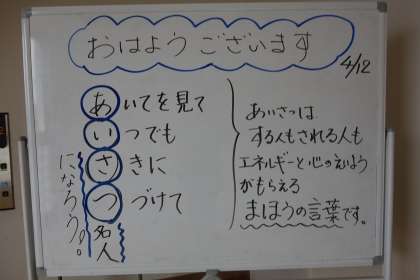 おはようございます
4/12
あいてを見て
いつでも
さきに
つづけて
名人
になろう。
あいさつは
する人もされる人も
エネルギーと心のえいよう
がもらえる
まほうの言葉です。